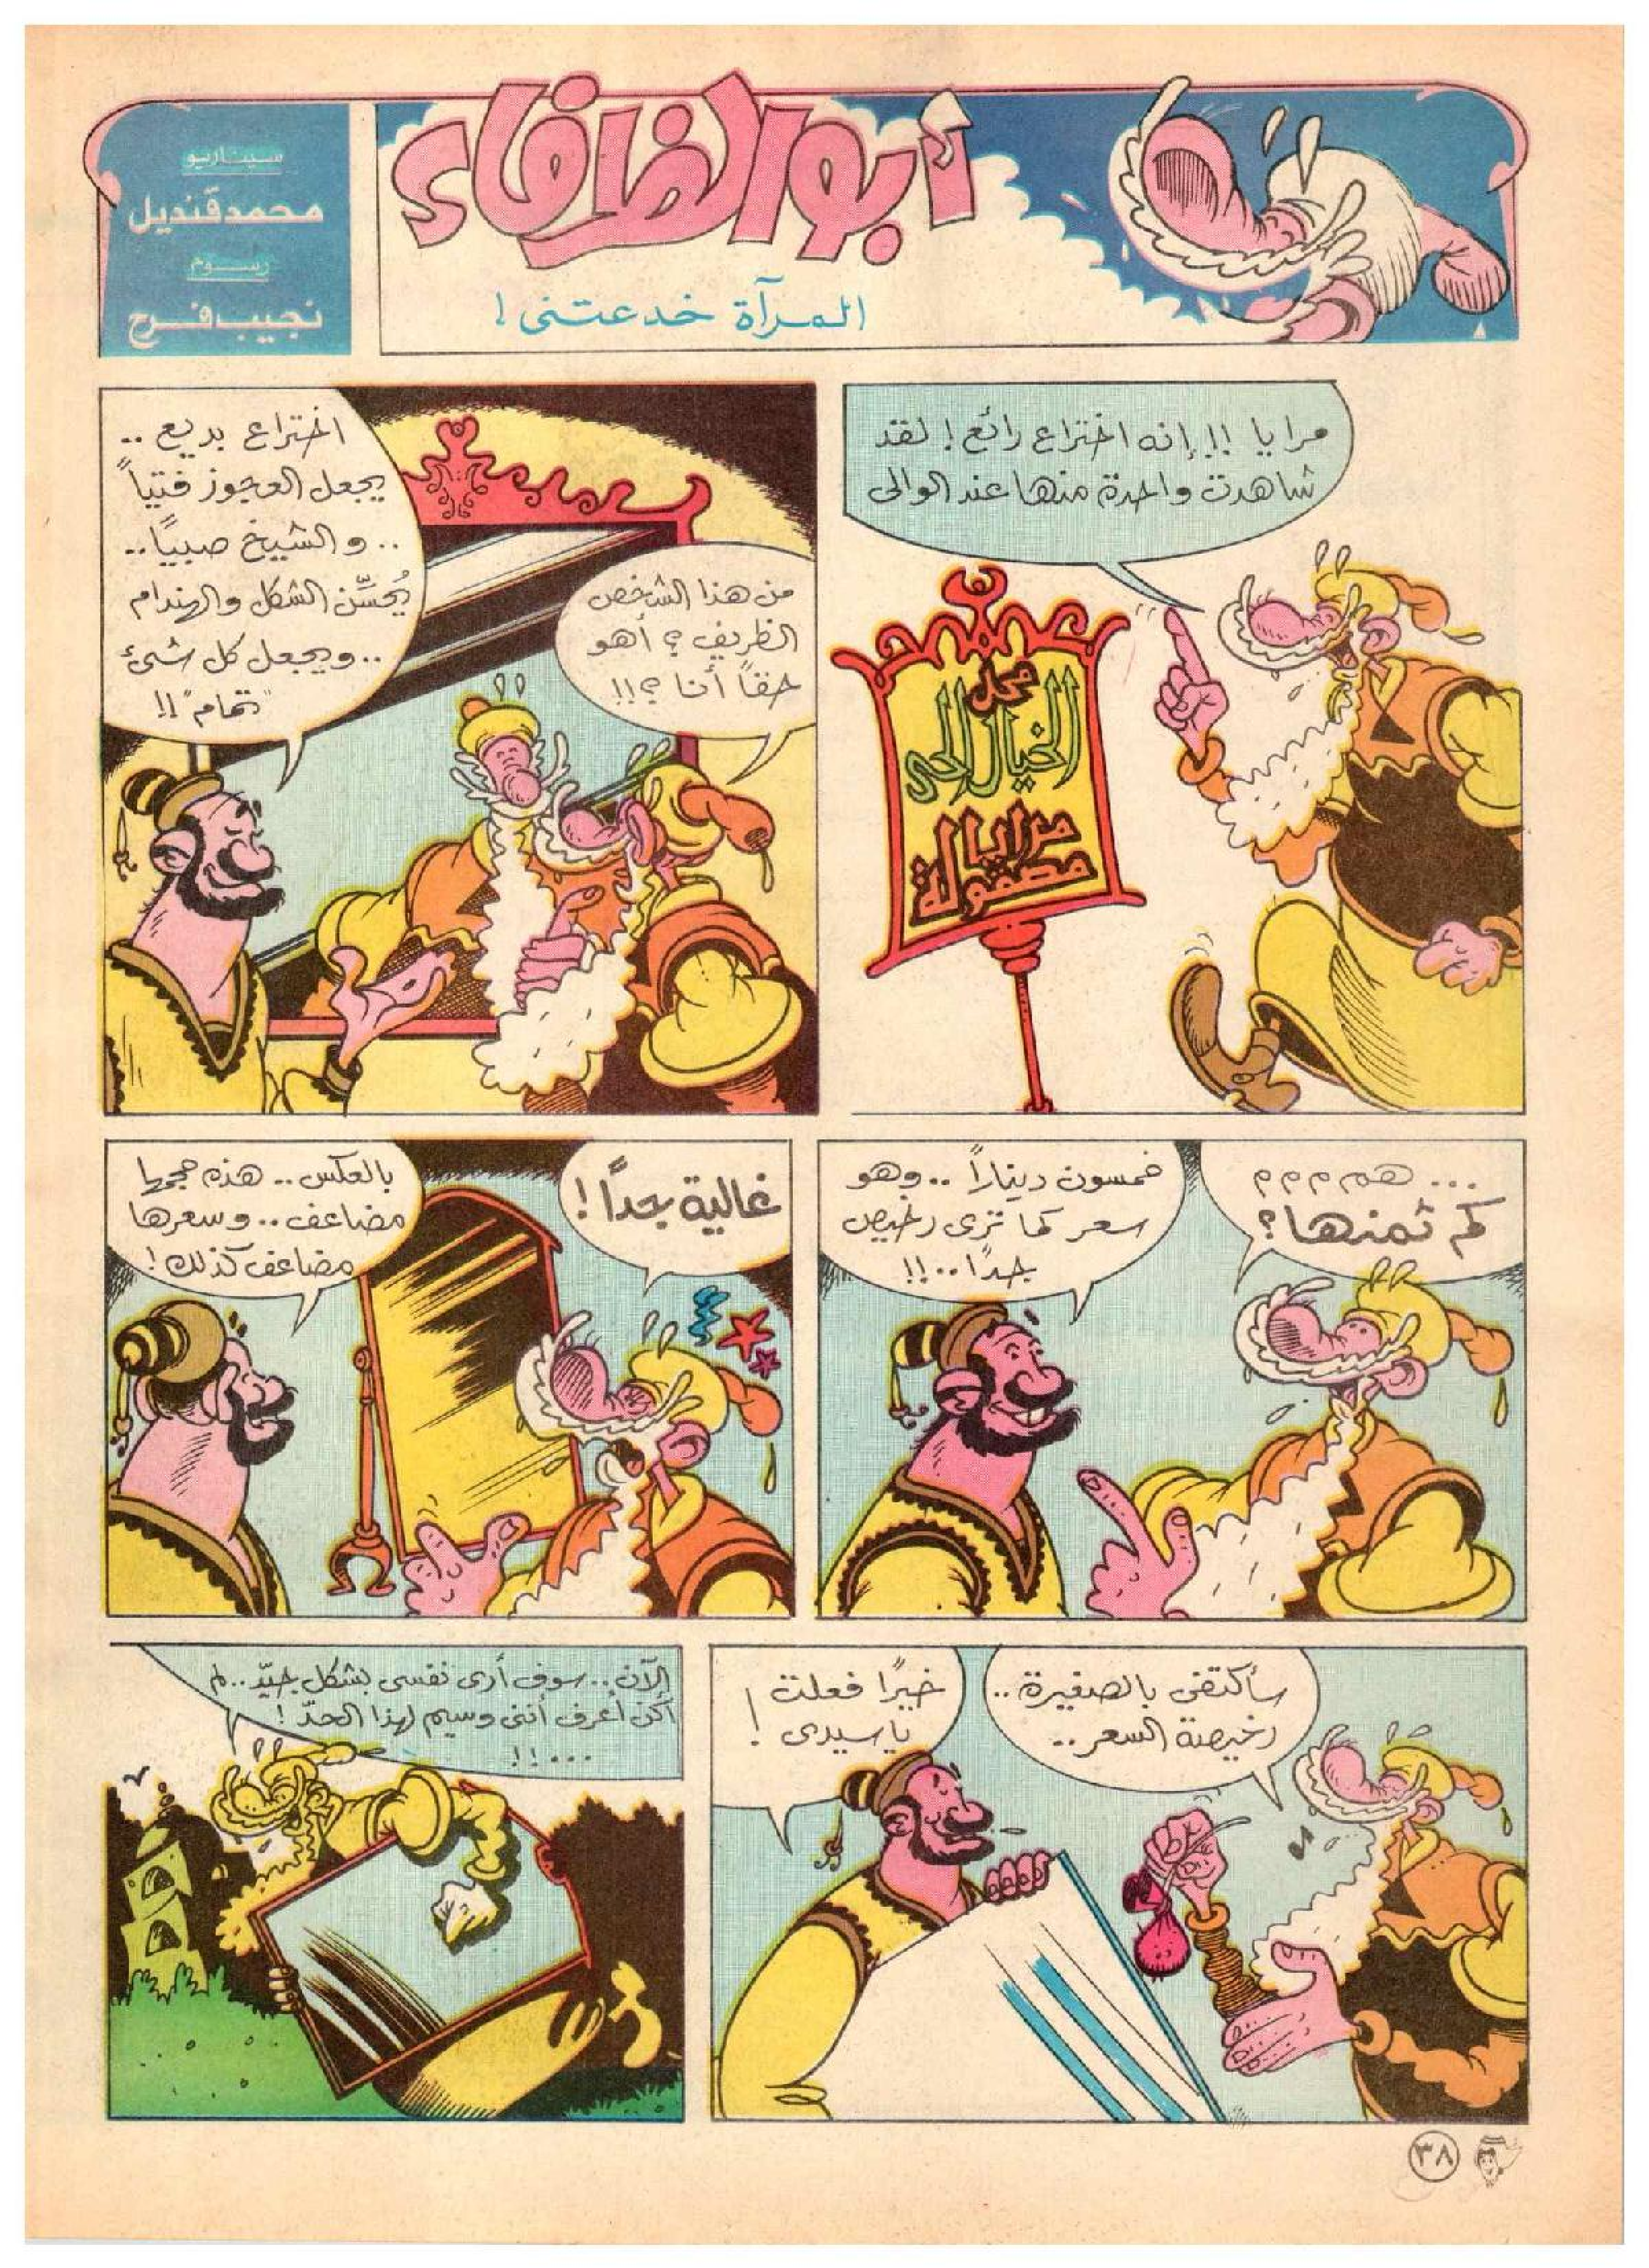 أبو الظرفاء
المرآة خدعتنى !
سيناريو
محمد قنديل
رسوم
نجيب فرج
مرايا !! إنه اختراع رائع ! لقد
شاهدت واحدة منها عند الوالى
محل
الخيال الحى
مرايا
مصقولة
من هذا الشخص
الظريف ؟ أهو
حقاً أنا ؟!!
اختراع بديع ..
يجعل العجوز فتياً
.. والشيخ صبياً ..
يُحسّن الشكل والهندام
.. ويجعل كل شىء
"تمام" !!
... هم م م م م
كم ثمنها ؟
خمسون ديناراً .. وهو
سعر كما ترى رخيص
جداً .. !!
غالية جداً !
بالعكس .. هذه حجمها
مضاعف .. وسعرها
مضاعف كذلك !
سأكتفى بالصغيرة ..
رخيصة السعر ..
خيرًا فعلت
يا سيدى !
الآن .. سوف أرى نفسى بشكل جيّد .. لم
أكن أعرف أننى وسيم لهذا الحدّ !
... !!
٣٨